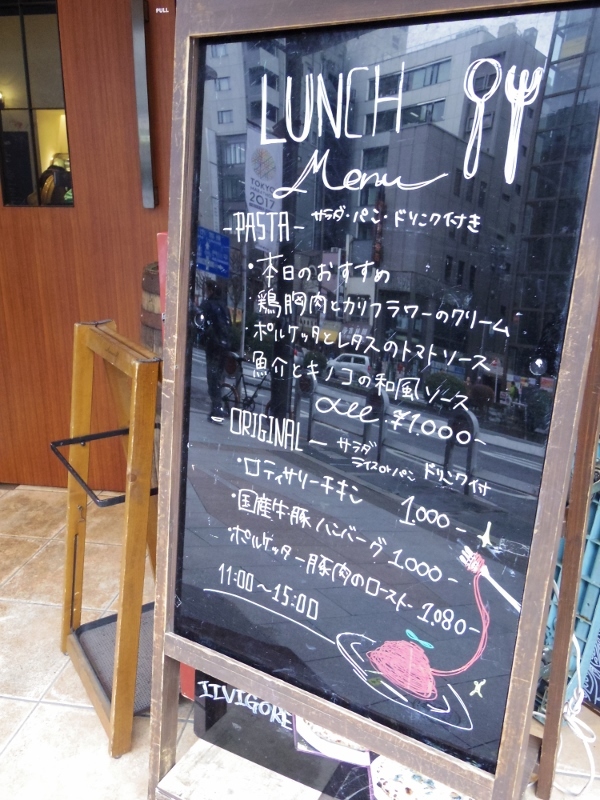 PULL
LUNCH
Menu
TOKYO
2017
-PASTA- サラダ・パン・ドリンク付き
・本日のおすすめ
・鶏胸肉とカリフラワーのクリーム
・ポルケッタとレタスのトマトソース
・魚介とキノコの和風ソース
all ¥1.000-
-ORIGINAL- サラダ
ライスorパン ドリンク付
・ロティサリーチキン 1.000-
・国産牛豚ハンバーグ 1.000-
・ポルケッタ-豚肉のロースト- 1.080-
11:00〜15:00